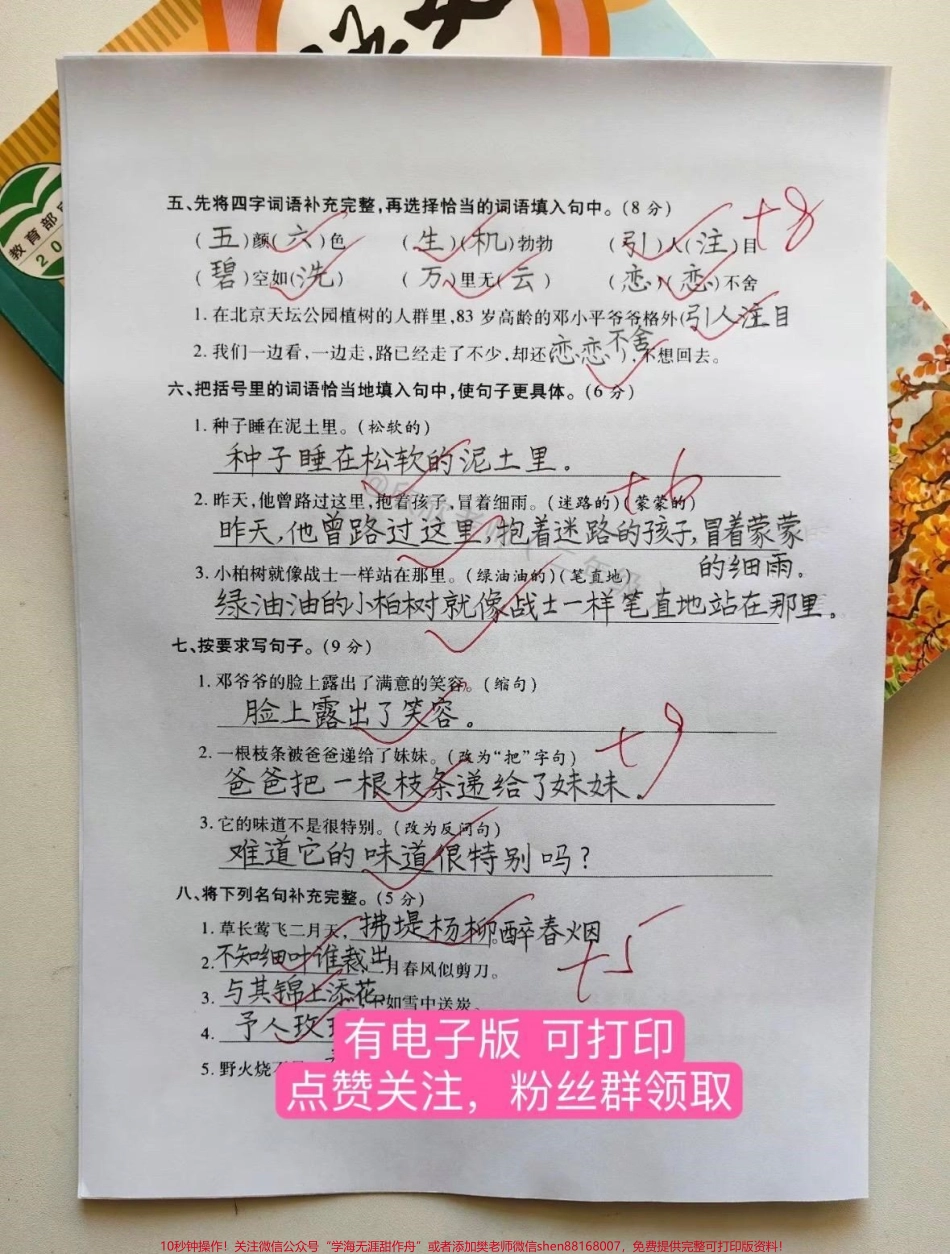 教育部
五、先将四字词语补充完整,再选择恰当的词语填入句中。(8分)
(五)颜(六)色 (生)(机)勃勃 (引)人(注)目
+8
(碧)空如(洗) (万)里无(云) (恋)(恋)不舍
1.在北京天坛公园植树的人群里,83岁高龄的邓小平爷爷格外(引人注目
2.我们一边看,一边走,路已经走了不少,却还(恋恋不舍),不想回去。
六、把括号里的词语恰当地填入句中,使句子更具体。(6分)
1.种子睡在泥土里。(松软的)
种子睡在松软的泥土里。
+6
2.昨天,他曾路过这里,抱着孩子,冒着细雨。(迷路的)(蒙蒙的)
昨天,他曾路过这里,抱着迷路的孩子,冒着蒙蒙
的细雨。
3.小柏树就像战士一样站在那里。(绿油油的)(笔直地)
绿油油的小柏树就像战士一样笔直地站在那里。
七、按要求写句子。(9分)
1.邓爷爷的脸上露出了满意的笑容。(缩句)
脸上露出了笑容。
+9
2.一根枝条被爸爸递给了妹妹。(改为“把”字句)
爸爸把一根枝条递给了妹妹。
3.它的味道不是很特别。(改为反问句)
难道它的味道很特别吗?
八、将下列名句补充完整。(5分)
1.草长莺飞二月天,拂堤杨柳醉春烟
+5
2.不知细叶谁裁出,二月春风似剪刀。
3.与其锦上添花,不如雪中送炭。
4.予人玫
5.野火烧
有电子版 可打印
点赞关注，粉丝群领取
10秒钟操作！关注微信公众号“学海无涯甜作舟”或者添加樊老师微信shen88168007，免费提供完整可打印版资料！